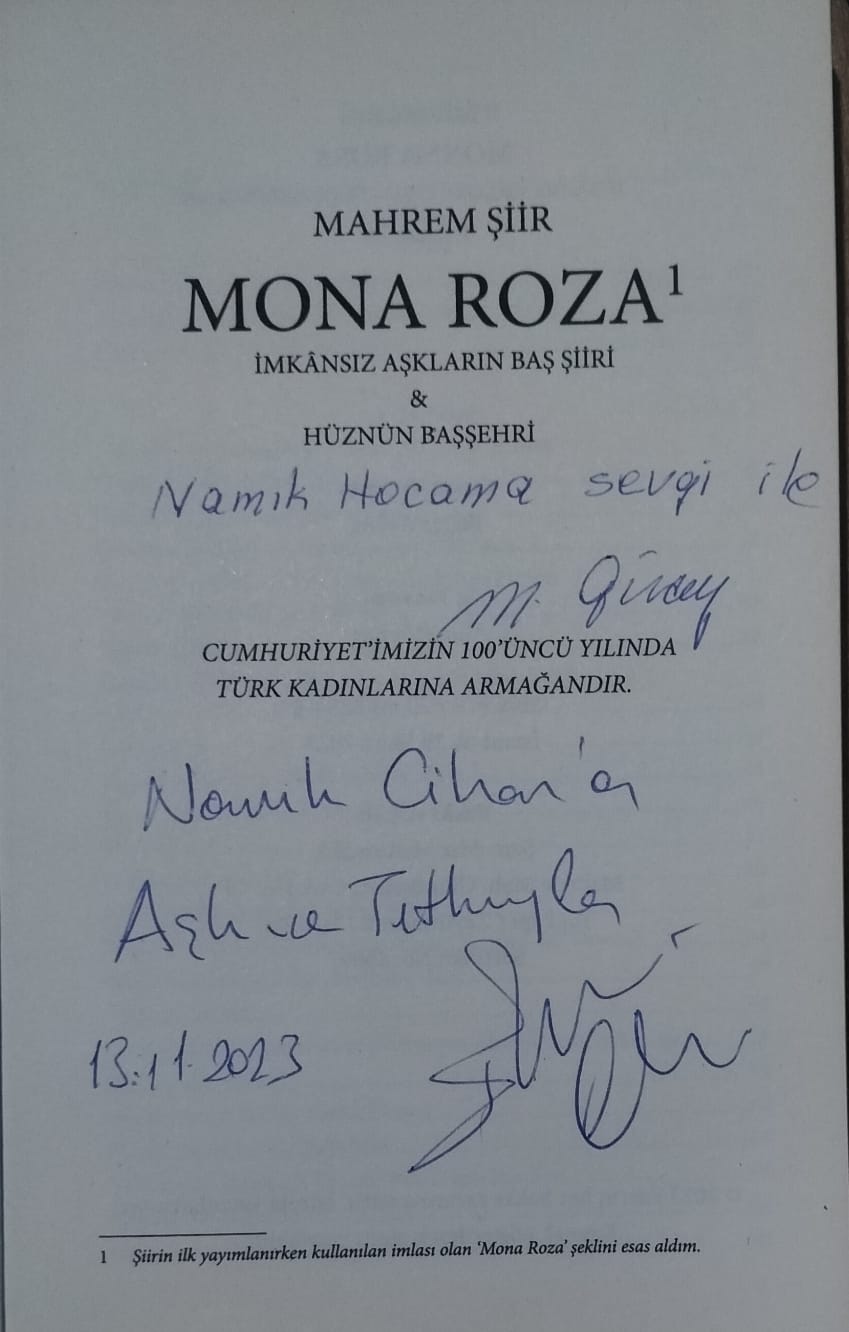 MAHREM ŞİİR
MONA ROZA¹
İMKÂNSIZ AŞKLARIN BAŞ ŞİİRİ
&
HÜZNÜN BAŞŞEHRİ
Namık Hocama sevgi ile
M. Güray
CUMHURİYET'İMİZİN 100'ÜNCÜ YILINDA
TÜRK KADINLARINA ARMAĞANDIR.
Namık Cihan'a
Aşk ve Tutkuyla
13.11.2023
1 Şiirin ilk yayımlanırken kullanılan imlası olan 'Mona Roza' şeklini esas aldım.